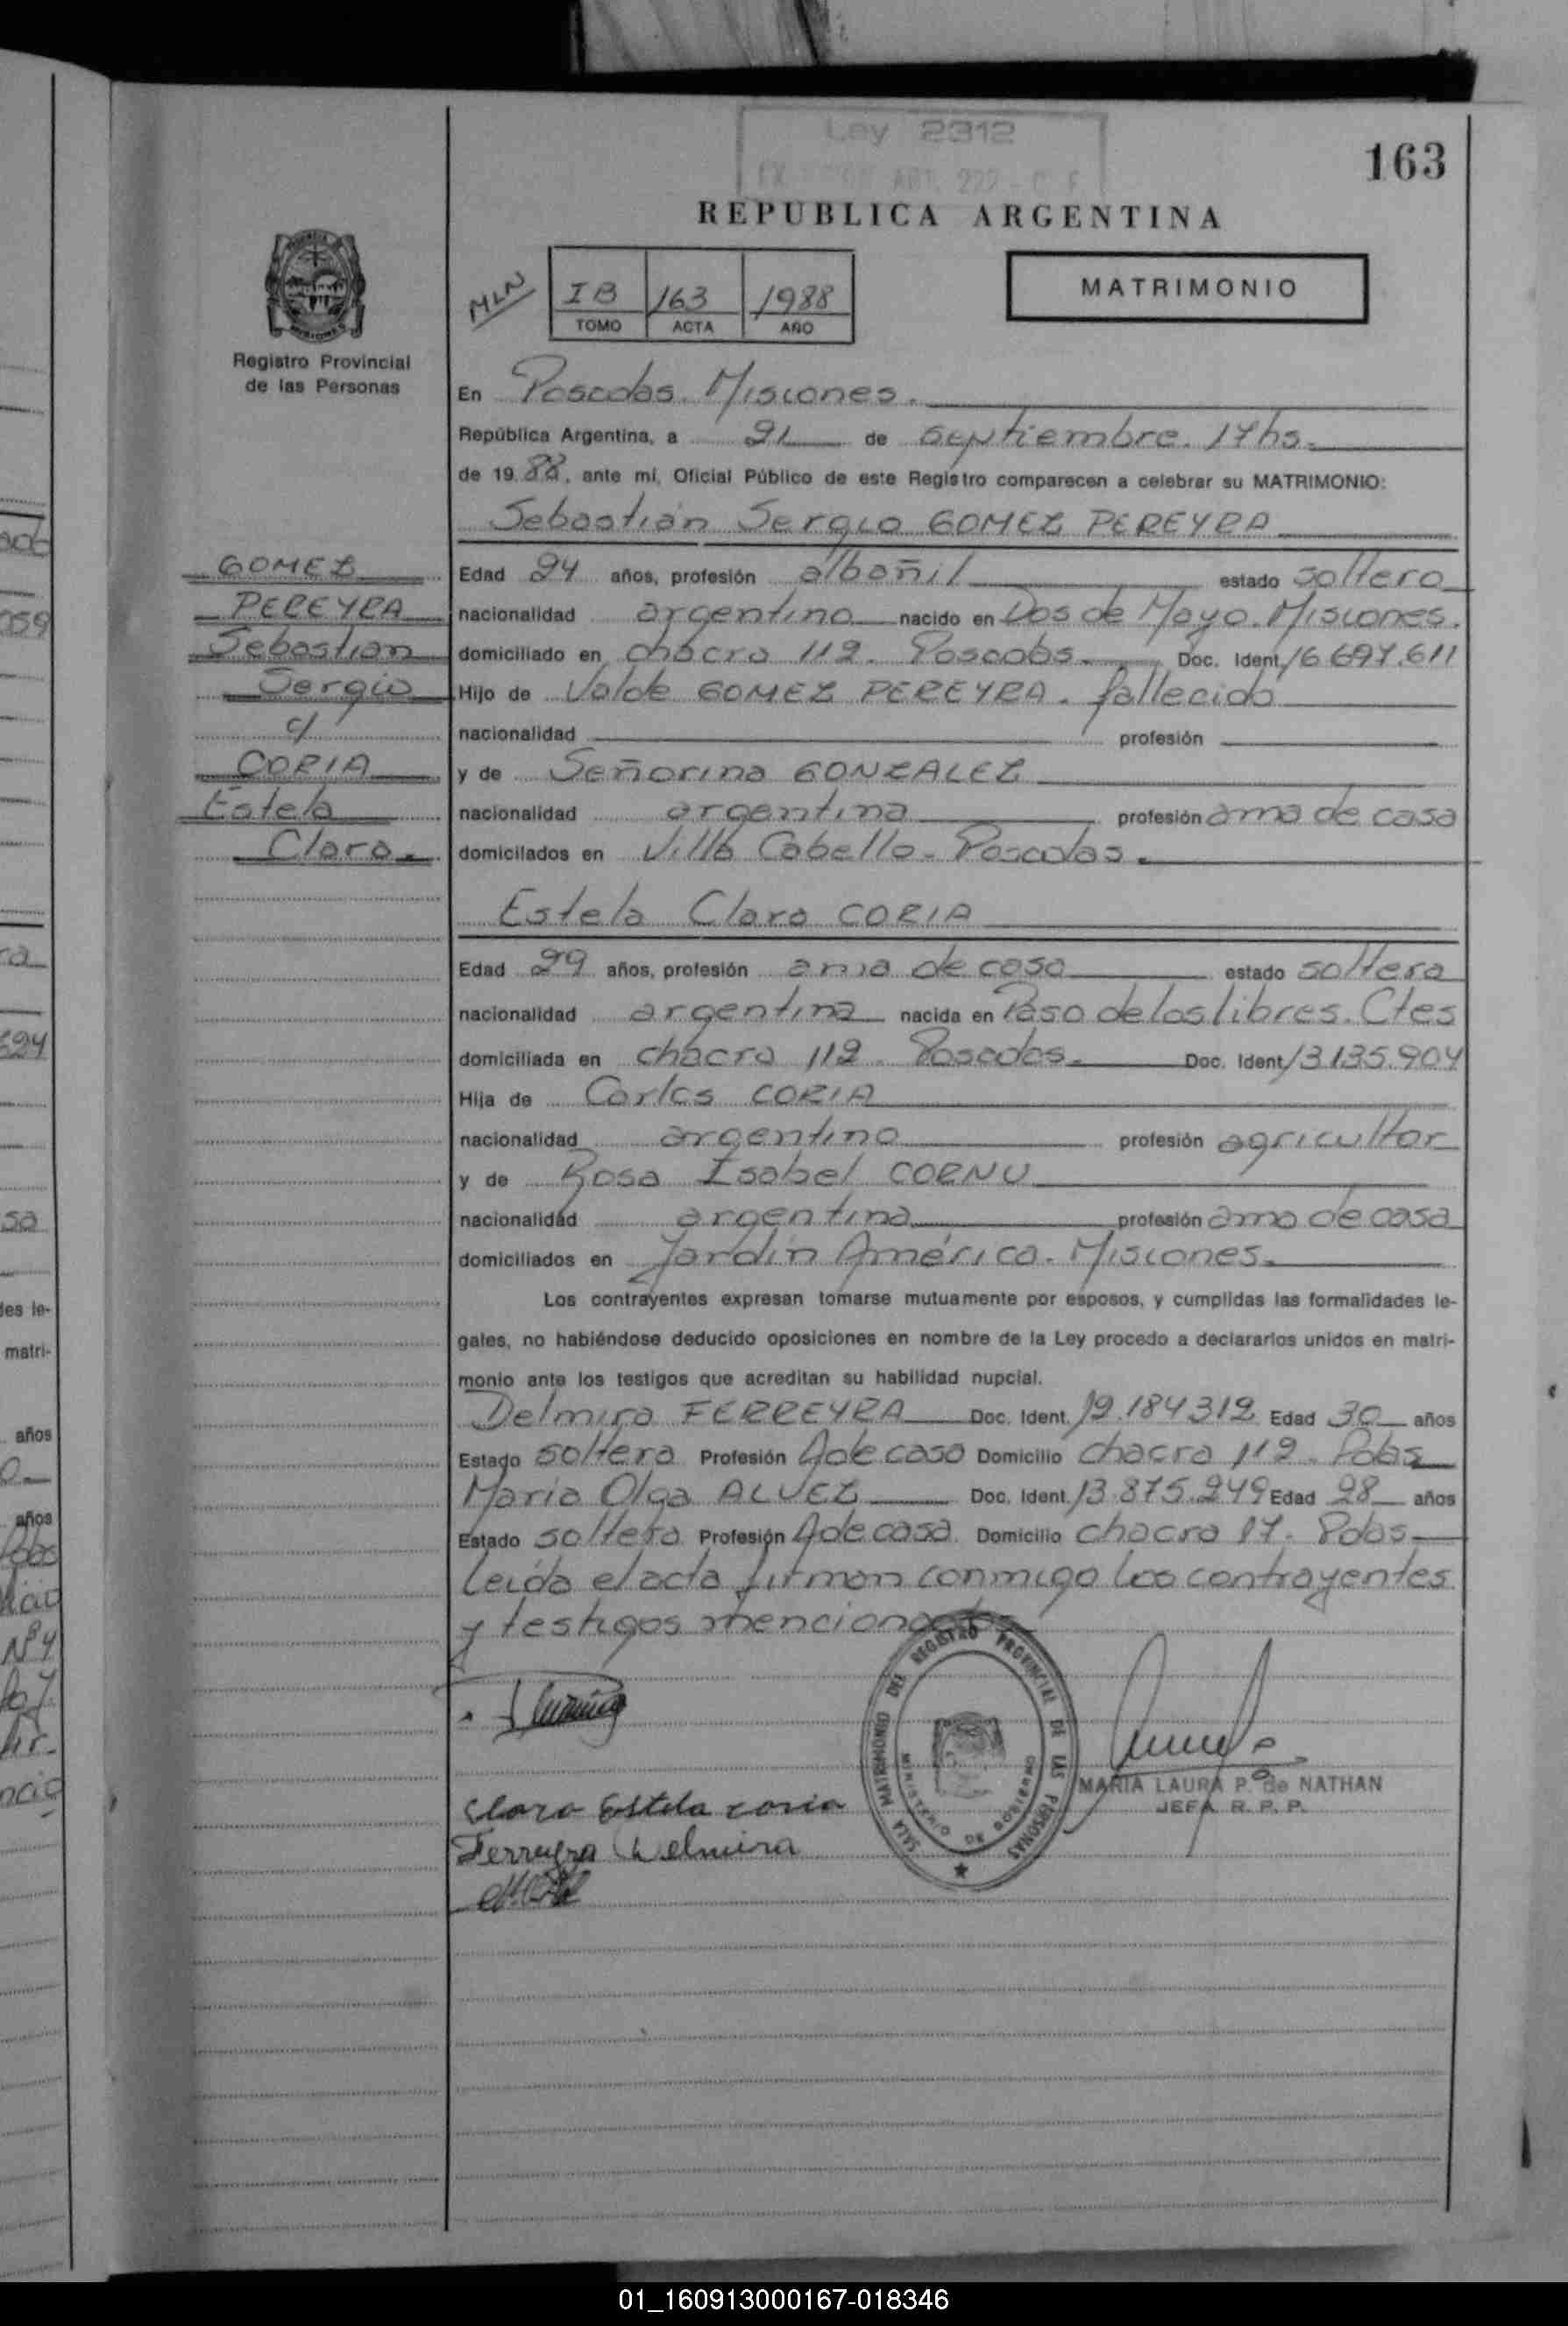 Ley 2312
ART. 222 - C. F.
163
REPUBLICA ARGENTINA
MLN
IB 163 1988
TOMO ACTA AÑO
MATRIMONIO
Registro Provincial
de las Personas
En Posadas. Misiones.
República Argentina, a 21 de septiembre. 17hs.
de 1988, ante mí, Oficial Público de este Registro comparecen a celebrar su MATRIMONIO:
Sebastián Sergio GOMEZ PEREYRA
GOMEZ
PEREYRA
Sebastian
Sergio
c/
CORIA
Estela
Clara.
Edad 24 años, profesión albañil estado soltero
nacionalidad argentino nacido en Dos de Mayo. Misiones.
domiciliado en chacra 112. Posadas. Doc. Ident. 16697.611
Hijo de Valde GOMEZ PEREYRA. fallecido
nacionalidad profesión
y de Señorina GONZALEZ
nacionalidad argentina profesión ama de casa
domicilados en Villa Cabello. Posadas.
Estela Clara CORIA
Edad 29 años, profesión ama de casa estado soltera
nacionalidad argentina nacida en Paso de los libres. Ctes
domiciliada en chacra 112. Posadas. Doc. Ident. 13135.904
Hija de Carlos CORIA
nacionalidad argentino profesión agricultor
y de Rosa Isabel CORNU
nacionalidad argentina profesión ama de casa
domiciliados en Jardín América. Misiones.
Los contrayentes expresan tomarse mutuamente por esposos, y cumplidas las formalidades le-
gales, no habiéndose deducido oposiciones en nombre de la Ley procedo a declararlos unidos en matri-
monio ante los testigos que acreditan su habilidad nupcial.
Delmira FERREYRA Doc. Ident. 12.184312 Edad 30 años
Estado soltera Profesión A de casa Domicilio chacra 112. Pdas
Maria Olga ALVEZ Doc. Ident. 13.875.249 Edad 28 años
Estado soltera Profesión A de casa Domicilio chacra 17. Pdas
Leida el acta firman conmigo los contrayentes
y testigos mencionados
SALA MATRIMONIO DEL REGISTRO PROVINCIAL DE LAS PERSONAS
MINISTERIO DE GOBIERNO
MARIA LAURA P. de NATHAN
JEFA R. P. P.
Clara Estela coria
Ferreyra Delmira
01_160913000167-018346